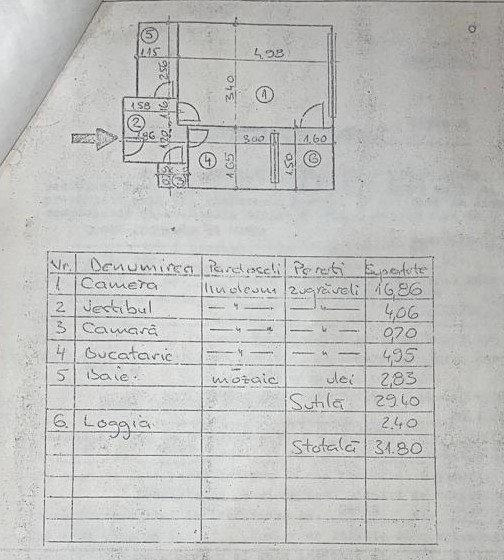 5
1.15
4,98
2.56
3.40
1
1.58
1.16
2
1.86
1.20
3.00
1,60
4
1.65
1.50
6
3
Nr. Denumirea Pardoseli Pereti Suprafute
1 Camera linoleum zugrăveli 16,86
2 Vestibul — " — — " — 4,06
3 Camară — " — — " — 0,70
4 Bucataric — " — — " — 4,95
5 Baie. mozaic ulei 2,83
Sutilă 29.40
6. Loggia 2.40
Stotală 31.80